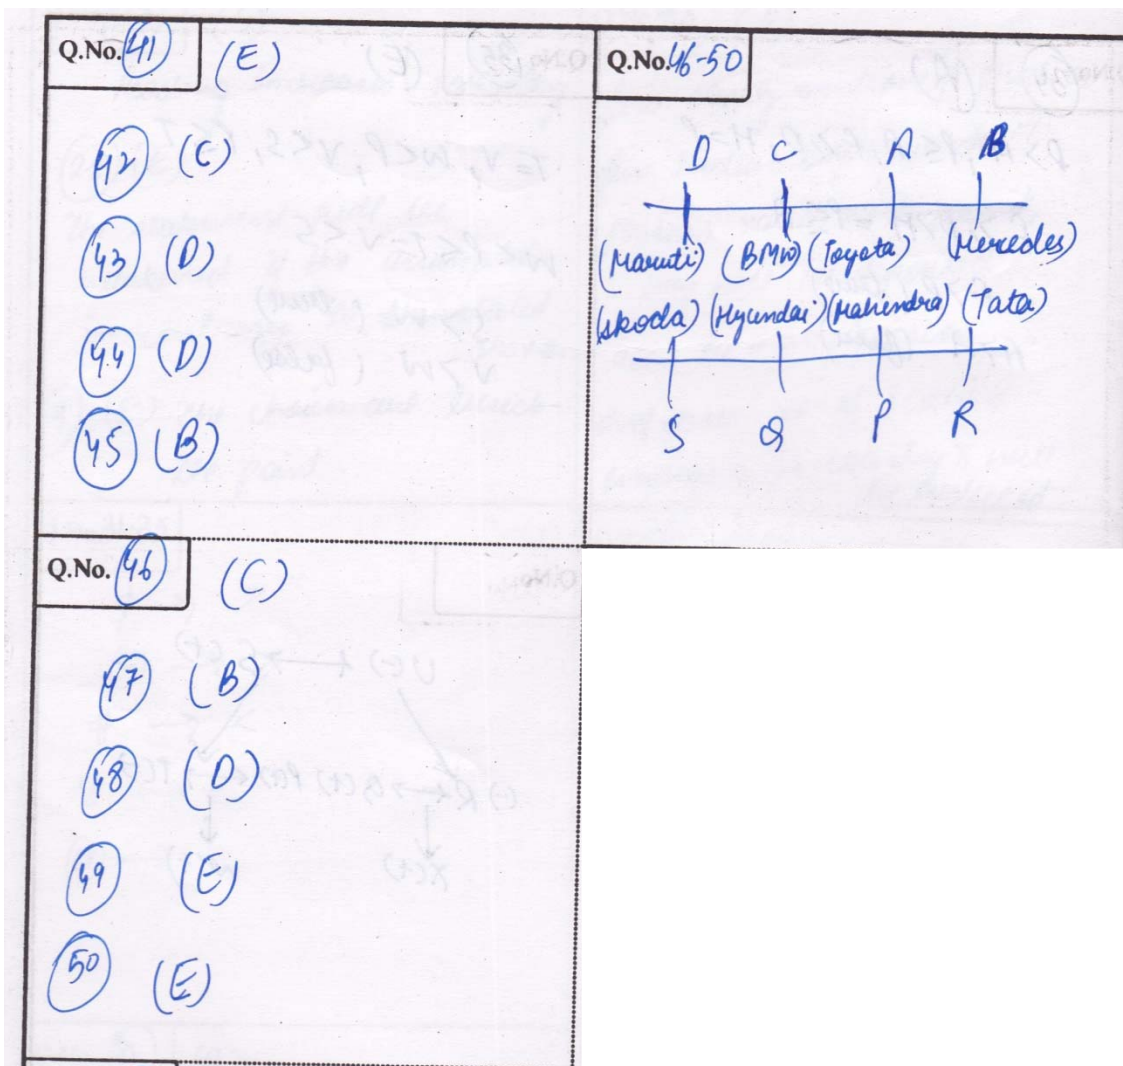 Q.No. 41 (E)
42 (C)
43 (D)
44 (D)
45 (B)
Q.No. 46-50
D C A B
(Maruti) (BMW) (Toyota) (Mercedes)
(Skoda) (Hyundai) (Mahindra) (Tata)
S Q P R
Q.No. 46 (C)
47 (B)
48 (D)
49 (E)
50 (E)